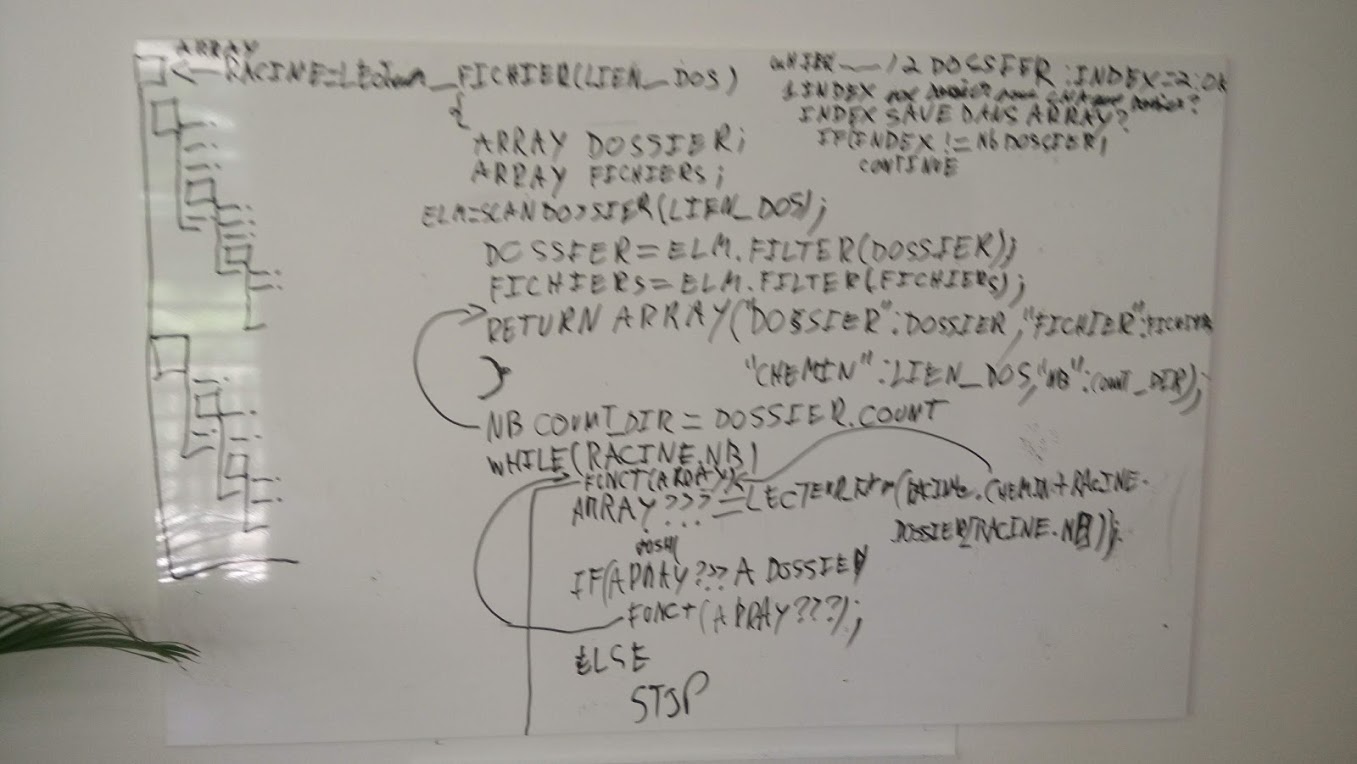 ARRAY
RACINE=LECTEUR_FICHIER(LIEN_DOS)
{
ARRAY DOSSIER;
ARRAY FICHIERS;
ELM=SCANDOSSIER(LIEN_DOS);
DOSSIER=ELM.FILTER(DOSSIER);
FICHIERS=ELM.FILTER(FICHIERS);
RETURN ARRAY("DOSSIER":DOSSIER,"FICHIER":FICHIER
"CHEMIN":LIEN_DOS,"NB":COUNT_DIR);
}
NB COUNT_DIR = DOSSIER.COUNT
WHILE(RACINE.NB)
FUNCT(ARRAY)
ARRAY ??? = (RACINE.CHEMIN+RACINE.
DOSSIER[RACINE.NB]);
IF(ARRAY??? A DOSSIER
FUNCT(ARRAY???);
ELSE
STOP
/2 DOSSIER:INDEX=2:OK
1 INDEX
INDEX SAVE DANS ARRAY?
IF(INDEX != NB DOSSIER)
CONTINUE